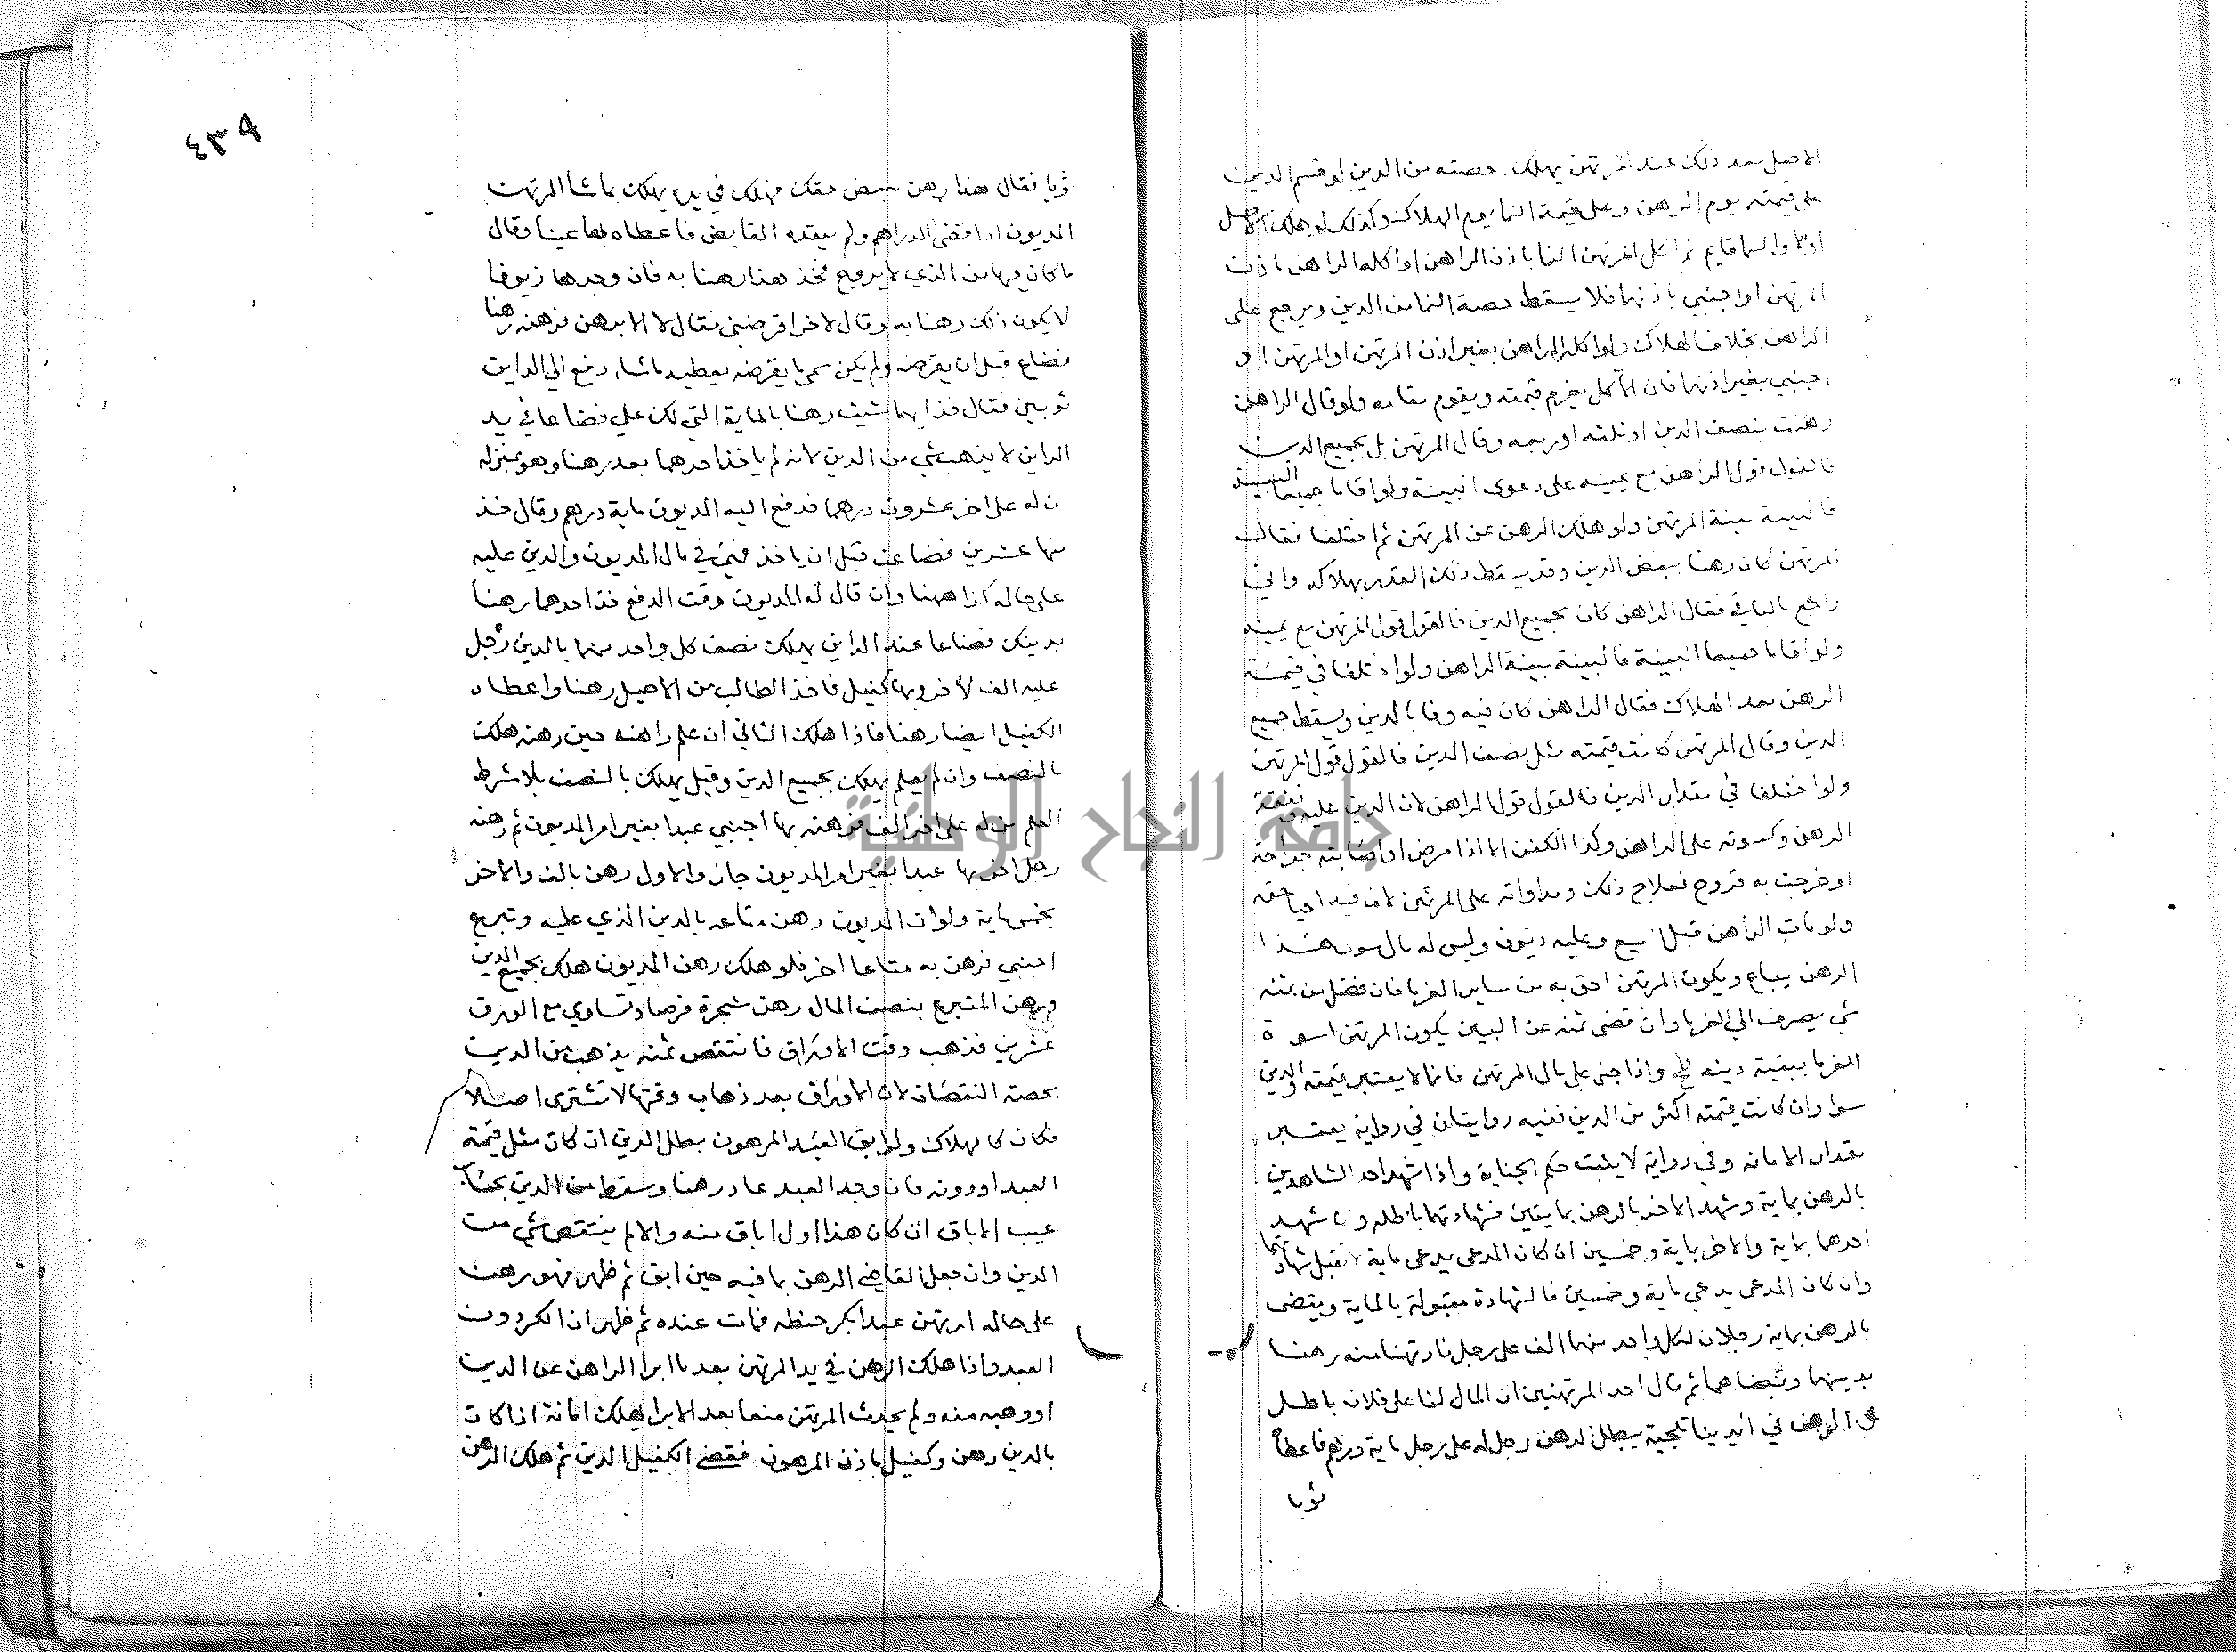 الاصل بعد ذلك عند المرتهن يهلك بحصته من الدين لو قسم الدين
على قيمته يوم الرهن وعلى قيمة النما يوم الهلاك وكذلك لو هلك الاصل
اولا والنما قايم ثم اكل المرتهن النما باذن الراهن او اكله الراهن باذن
المرتهن او اجنبي باذنهما فلا يسقط حصة النما من الدين ويرجع على
الراهن بخلاف الهلاك ولو اكله الراهن بغير اذن المرتهن او المرتهن او
اجنبي بغير اذنهما فان الآكل يغرم قيمته ويقوم مقامه ولو قال الراهن
رهنت بنصف الدين او ثلثه او ربعه وقال المرتهن بل بجميع الدين
فالقول قول الراهن مع يمينه على دعوى البينة ولو اقاما جميعا البينة
فالبينة بينة المرتهن ولو هلك الرهن عن المرتهن ثم اختلفا فقال
المرتهن كان رهنا ببعض الدين وقد يسقط ذلك القدر بهلاكه واني
راجع بالباقي فقال الراهن كان بجميع الدين فالقول قول المرتهن مع يمينه
ولو اقاما جميعا البينة فالبينة بينة الراهن ولو اختلفا في قيمة
الرهن بعد الهلاك فقال الراهن كان فيه وفا بالدين ويسقط جميع
الدين وقال المرتهن كانت قيمته مثل نصف الدين فالقول قول المرتهن
ولو اختلفا في مقدار الدين فالقول قول الراهن لان الدين عليه نفقة
الرهن وكسوته على الراهن وكذا الكفن الا اذا مرض او اصابته جراحة
او خرجت به قروح فعلاج ذلك ومداواته على المرتهن لان فيه احيا حقه
ولو مات الراهن قبل بيع وعليه ديون وليس له مال سوى هذا
الرهن يباع ويكون المرتهن احق به من ساير الغرما فان فضل من ثمنه
شي يصرف الى الغرما وان قضى ثمنه عن البين يكون المرتهن اسوة
الغرما ببقية دينه واذا جنى على مال المرتهن فانما لا يعتبر قيمته والدين
سوا وان كانت قيمته اكثر من الدين ففيه روايتان في رواية يعتبر
مقدار الامانة وفي رواية لا يثبت حكم الجناية واذا شهد احد الشاهدين
بالرهن بماية وشهد الاخر بالرهن بمايتين فشهادتهما باطله وما شهد
احدهما بماية والاخر بماية وخمسين ان كان المدعى يدعى ماية لا تقبل شهادتهما
وان كان المدعى يدعي ماية وخمسين فالشهادة مقبولة بالماية ويقضى
بالرهن بماية رجلان لكل واحد منهما الف على رجل فارتهنا منه رهنا
بدينهما وقبضاهما ثم قال احد المرتهنين ان المال لنا على فلان باطل
الرهن في ايدينا تلجية يبطل الرهن رجل له على رجل ماية درهم فاعطاه
ثوبا
٤٣٩
ثوبا فقال هذا رهن ببعض حقك فهلك في يده يهلك بما شا المرتهن
المديون اذا قضى الدراهم ولم ينقده القابض فاعطاه بها عينا وقال
ما كان فيها من الذي لا يروج فخذ هذا رهنا به فان وجدها زيوفا
لا يكون ذلك رهنا به وقال لاخر اقرضني فقال لا الا برهن فرهنه رهنا
فضاع قبل ان يقرضه ولم يكن سمى ما يقرضه يعطيه ما شا رفع الى الداين
ثوبين فقال خذ ايهما شيت رهنا بالماية التي لك علي فضاعا في يد
الداين لا يذهب شي من الدين لانه لم ياخذ احدهما بعد رهنا وهو بمنزلة
من له على اخر عشرون درهما فدفع اليه المديون ماية درهم وقال خذ
منها عشرين فضاعت قبل ان ياخذ فهي في مال المديون والدين عليه
على حاله كذا ههنا وان قال له المديون وقت الدفع خذ احدهما رهنا
بدينك فضاعا عند الداين يهلك نصف كل واحد منهما بالدين رجل
عليه الف لاخر وبها كفيل فاخذ الطالب من الاصيل رهنا واعطاه
الكفيل ايضا رهنا فاذا هلك الثاني ان علم راهنه حين رهنه هلك
بالنصف وان لم يعلم يهلك بجميع الدين وقيل يهلك بالنصف بلا شرط
العلم من له على اخر الف فرهنه بها اجنبي عبدا بغير امر المديون ثم رهنه
رجل اخر بها عبدا بغير امر المديون جاز والاول رهن بالف والاخر
بخمس ماية ولو ان المديون رهن متاعه بالدين الذي عليه وتبرع
اجنبي فرهن به متاعا اخر فلو هلك رهن المديون هلك بجميع الدين
ورهن المتبرع بنصف المال رهن شجرة فرصاد تساوي مع الورق
عشرين فذهب وقت الاوراق فانتقص ثمنه يذهب من الدين
بحصته النقصان لان الاوراق بعد ذهاب وقتها لا تشترى اصلا
فكان كالهلاك ولو ابق العبد المرهون بطل الدين ان كان مثل قيمة
العبد او دونه فان وجد العبد عاد رهنا وسقط من الدين بحساب
عيب الاباق ان كان هذا اول اباق منه والا لم ينتقص شي من
الدين وان جعل القاضي الرهن بما فيه حين ابق ثم ظهر فهو رهن
على حاله ارتهن عبدا بكر حنطه فمات عنده ثم ظهر ان الكر دون
العبد واذا هلك الرهن في يد المرتهن بعد ما ابرا الراهن عن الدين
او وهبه منه ولم يحدث المرتهن منعا بعد الابرا يهلك امانة اذا كان
بالدين رهن وكفيل باذن المرهون فقضى الكفيل الدين ثم هلك الرهن
جامعة النجاح الوطنية